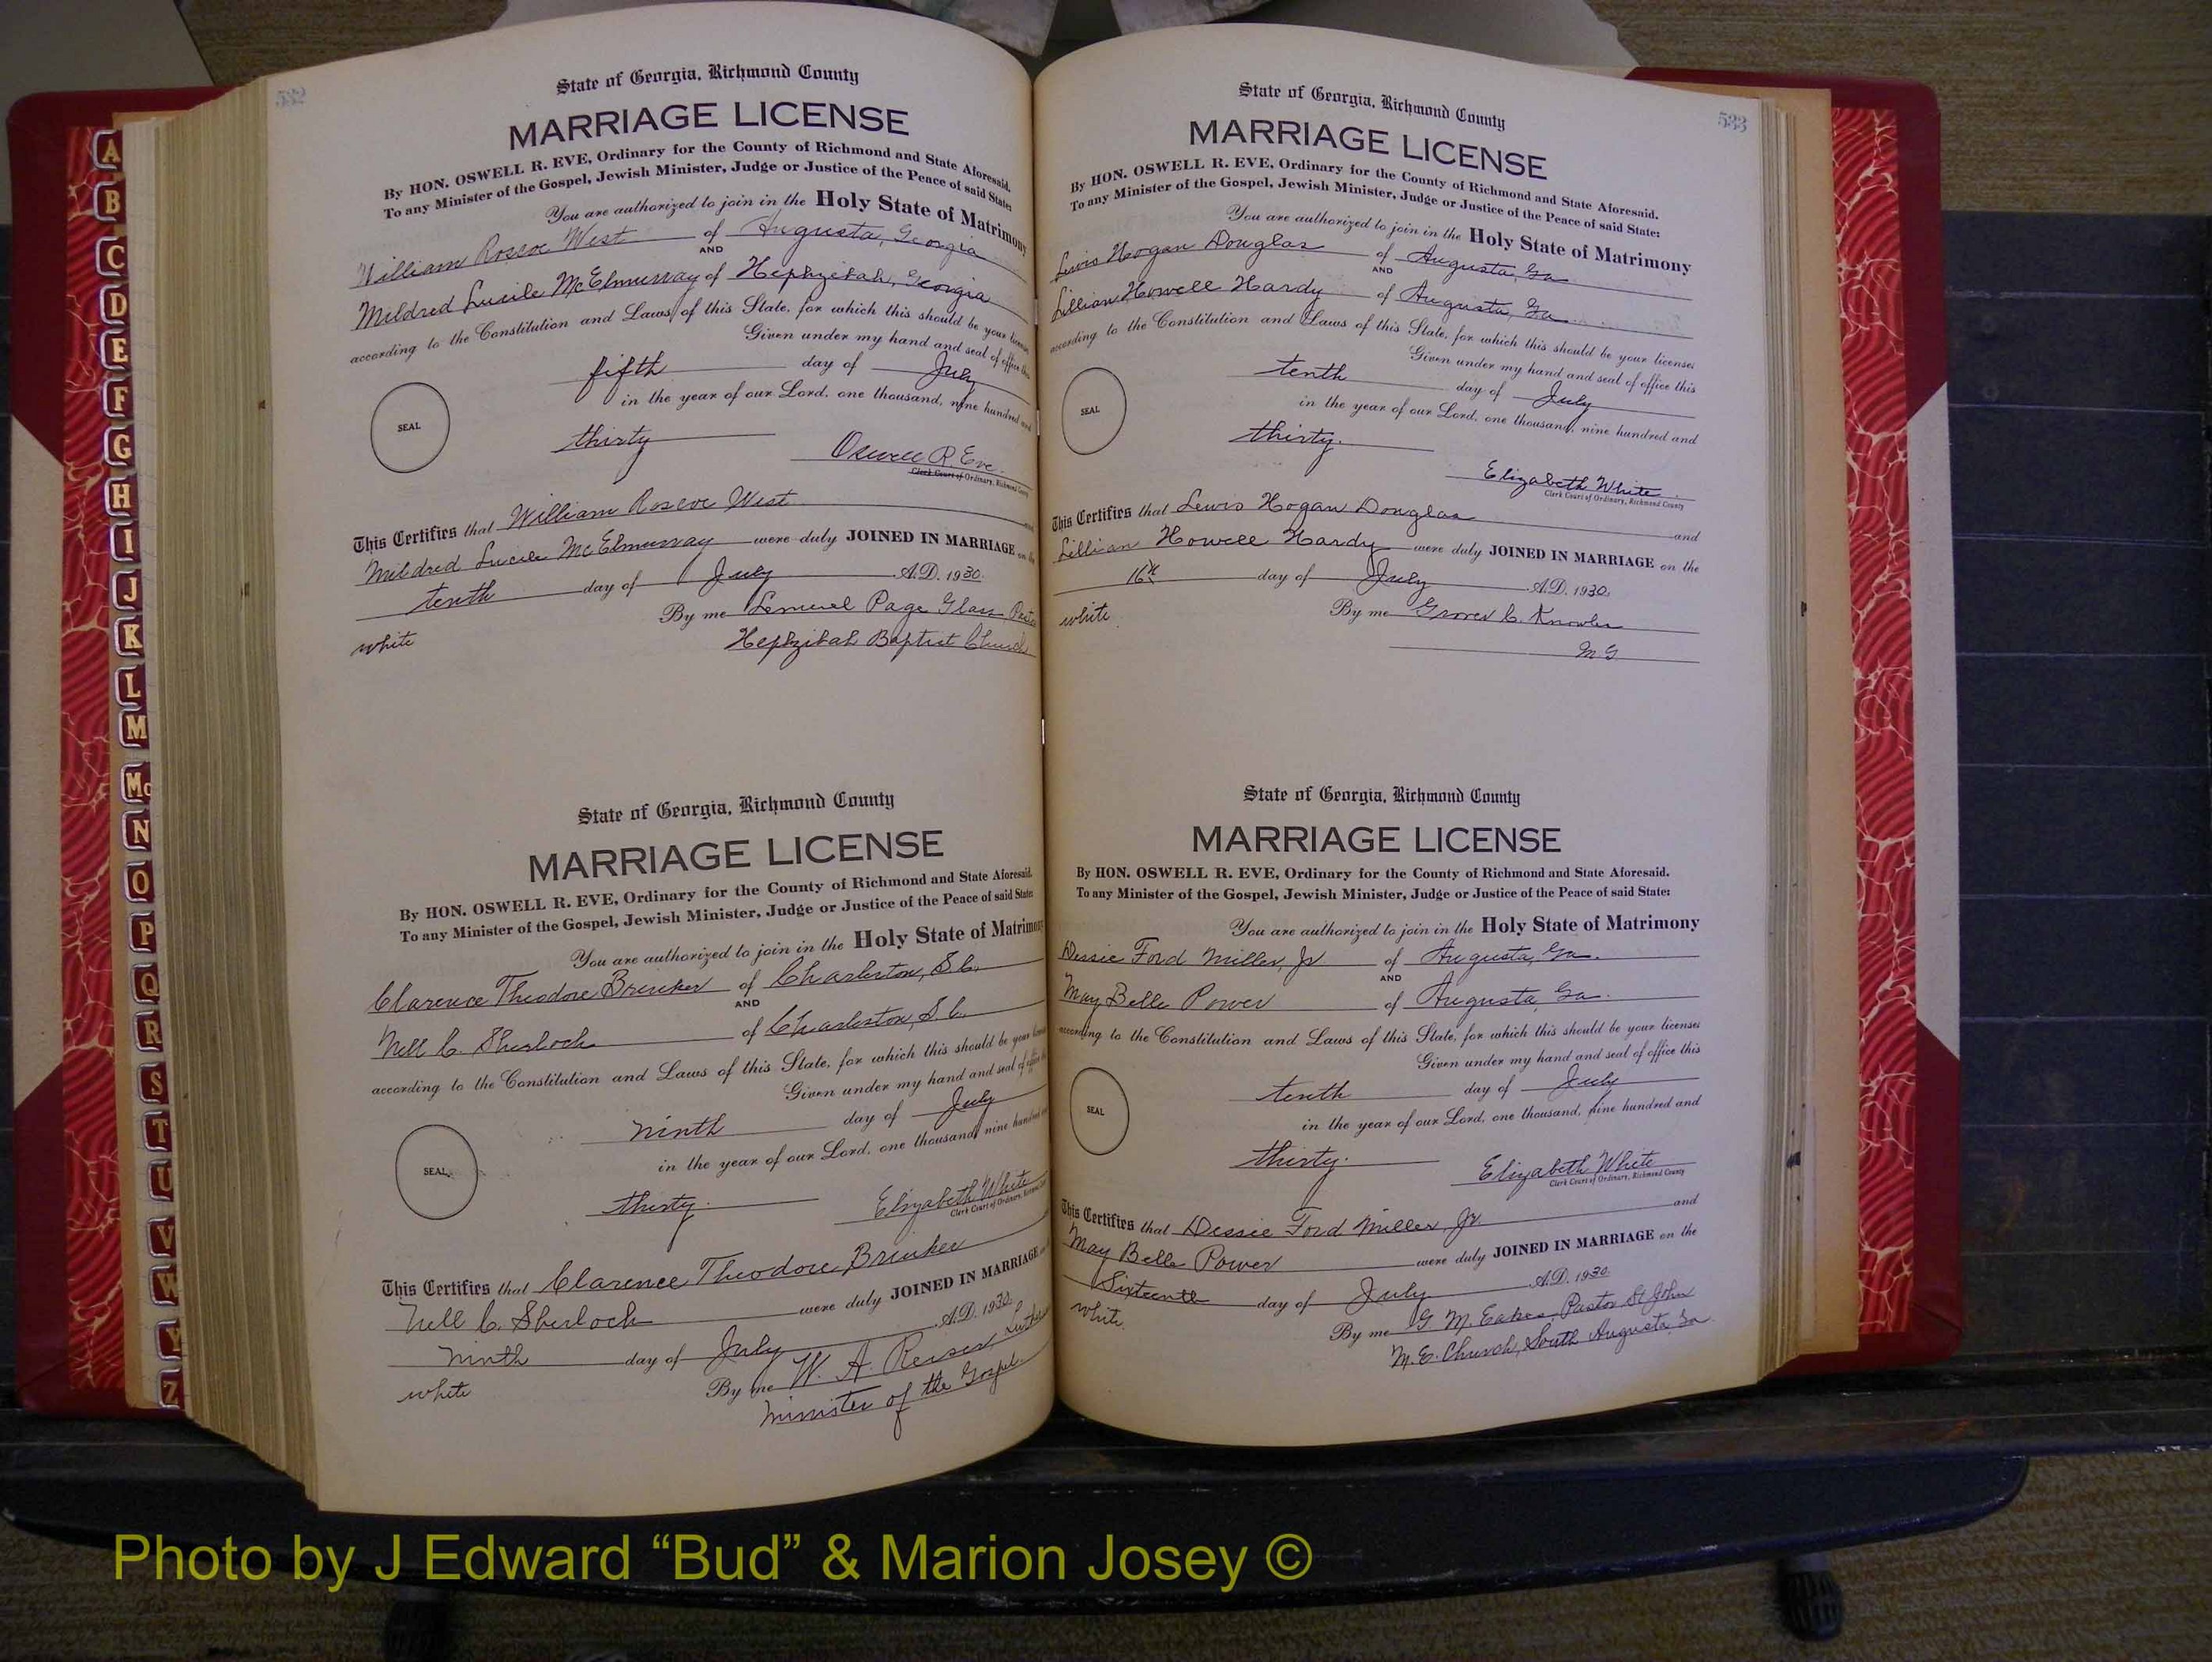 A
B
C
D
E
F
G
H
I
J
K
L
M
Mc
N
O
P
Q
R
S
T
U
V
W
Y
Z
532
State of Georgia, Richmond County
MARRIAGE LICENSE
By HON. OSWELL R. EVE, Ordinary for the County of Richmond and State Aforesaid.
To any Minister of the Gospel, Jewish Minister, Judge or Justice of the Peace of said State:
You are authorized to join in the Holy State of Matrimony
William Roscoe West of Augusta, Georgia
AND
Mildred Lucile McElmurray of Hephzibah, Georgia
according to the Constitution and Laws of this State, for which this should be your license
Given under my hand and seal of office this
fifth day of July
SEAL
in the year of our Lord, one thousand, nine hundred and
thirty
Oswell R. Eve
Clerk Court of Ordinary, Richmond County
This Certifies that William Roscoe West and
Mildred Lucile McElmurray were duly JOINED IN MARRIAGE on the
tenth day of July A.D. 1930.
By me Lemuel Page Glass
white
Hephzibah Baptist Church
State of Georgia, Richmond County
MARRIAGE LICENSE
By HON. OSWELL R. EVE, Ordinary for the County of Richmond and State Aforesaid.
To any Minister of the Gospel, Jewish Minister, Judge or Justice of the Peace of said State:
You are authorized to join in the Holy State of Matrimony
Clarence Theodore Brunker of Charleston, S.C.
AND
Nell C Sherlock of Charleston, S.C.
according to the Constitution and Laws of this State, for which this should be your license
Given under my hand and seal of office this
ninth day of July
SEAL
in the year of our Lord, one thousand, nine hundred and
thirty.
Elizabeth White
Clerk Court of Ordinary, Richmond County
This Certifies that Clarence Theodore Brunker
Nell C. Sherlock were duly JOINED IN MARRIAGE
ninth day of July A.D. 1930.
By me W. A. Reiser
white
Minister of the Gospel
533
State of Georgia, Richmond County
MARRIAGE LICENSE
By HON. OSWELL R. EVE, Ordinary for the County of Richmond and State Aforesaid.
To any Minister of the Gospel, Jewish Minister, Judge or Justice of the Peace of said State:
You are authorized to join in the Holy State of Matrimony
Lewis Hogan Douglas of Augusta, Ga.
AND
Lillian Howell Hardy of Augusta, Ga.
according to the Constitution and Laws of this State, for which this should be your licenses
Given under my hand and seal of office this
tenth day of July
SEAL
in the year of our Lord, one thousand, nine hundred and
thirty.
Elizabeth White
Clerk Court of Ordinary, Richmond County
This Certifies that Lewis Hogan Douglas and
Lillian Howell Hardy were duly JOINED IN MARRIAGE on the
16th day of July A.D. 1930.
white. By me Grover C. Knowles
M G
State of Georgia, Richmond County
MARRIAGE LICENSE
By HON. OSWELL R. EVE, Ordinary for the County of Richmond and State Aforesaid.
To any Minister of the Gospel, Jewish Minister, Judge or Justice of the Peace of said State:
You are authorized to join in the Holy State of Matrimony
Dessie Ford Miller, Jr of Augusta, Ga.
AND
May Belle Power of Augusta, Ga.
according to the Constitution and Laws of this State, for which this should be your licenses
Given under my hand and seal of office this
tenth day of July
SEAL
in the year of our Lord, one thousand, nine hundred and
thirty.
Elizabeth White
Clerk Court of Ordinary, Richmond County
This Certifies that Dessie Ford Miller, Jr. and
May Belle Power were duly JOINED IN MARRIAGE on the
Sixteenth day of July A.D. 1930.
white. By me G. M. Eakes, Pastor St John
M.E. Church, South Augusta, Ga
Photo by J Edward “Bud” & Marion Josey ©